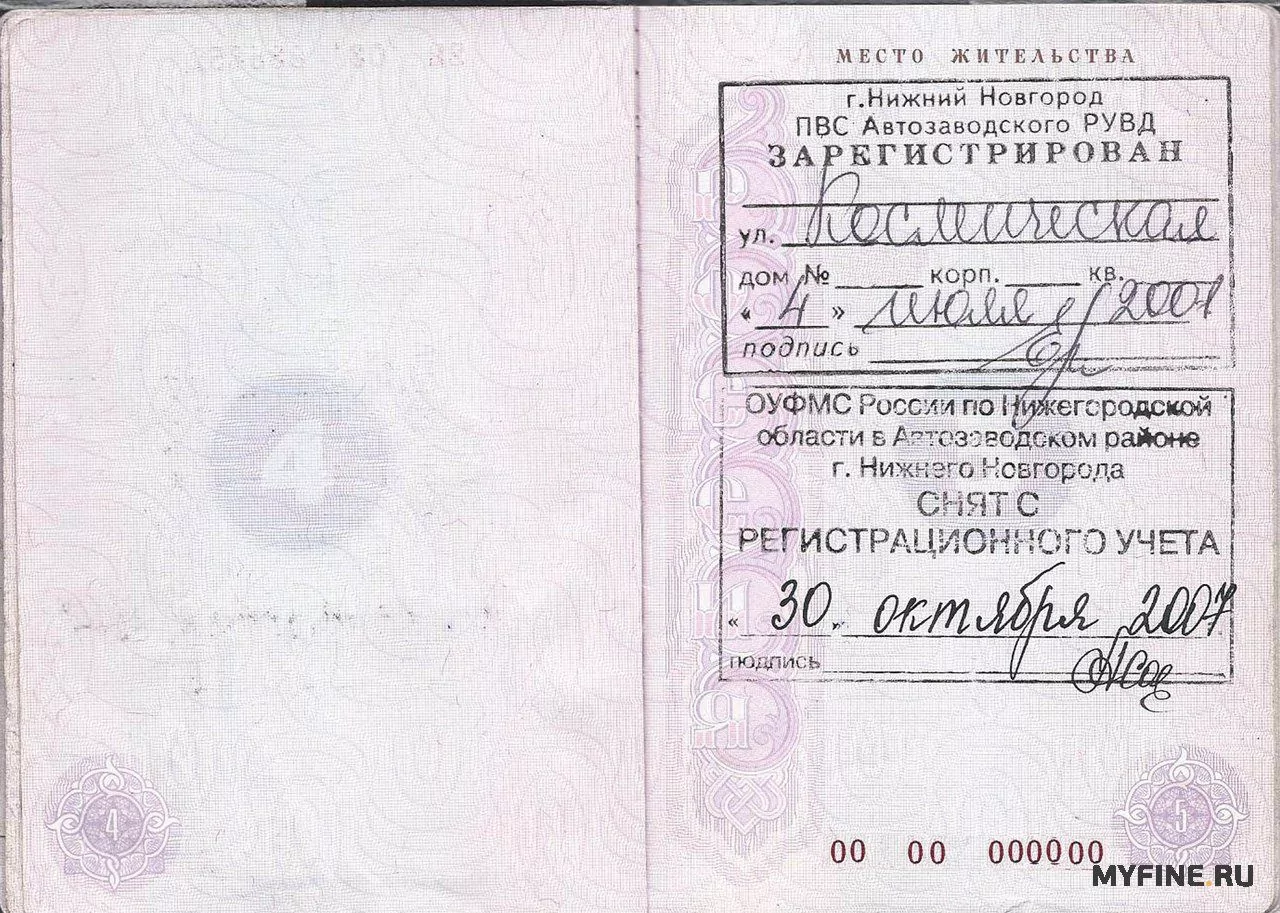 МЕСТО ЖИТЕЛЬСТВА
г.Нижний Новгород
ПВС Автозаводского РУВД
ЗАРЕГИСТРИРОВАН
ул. Космическая
дом № корп. кв.
« 4 » июля 2001
подпись
ОУФМС России по Нижегородской
области в Автозаводском районе
г. Нижнего Новгорода
СНЯТ С
РЕГИСТРАЦИОННОГО УЧЕТА
« 30 » октября 2007
подпись
4
4
5
00 00 000000
MYFINE.RU